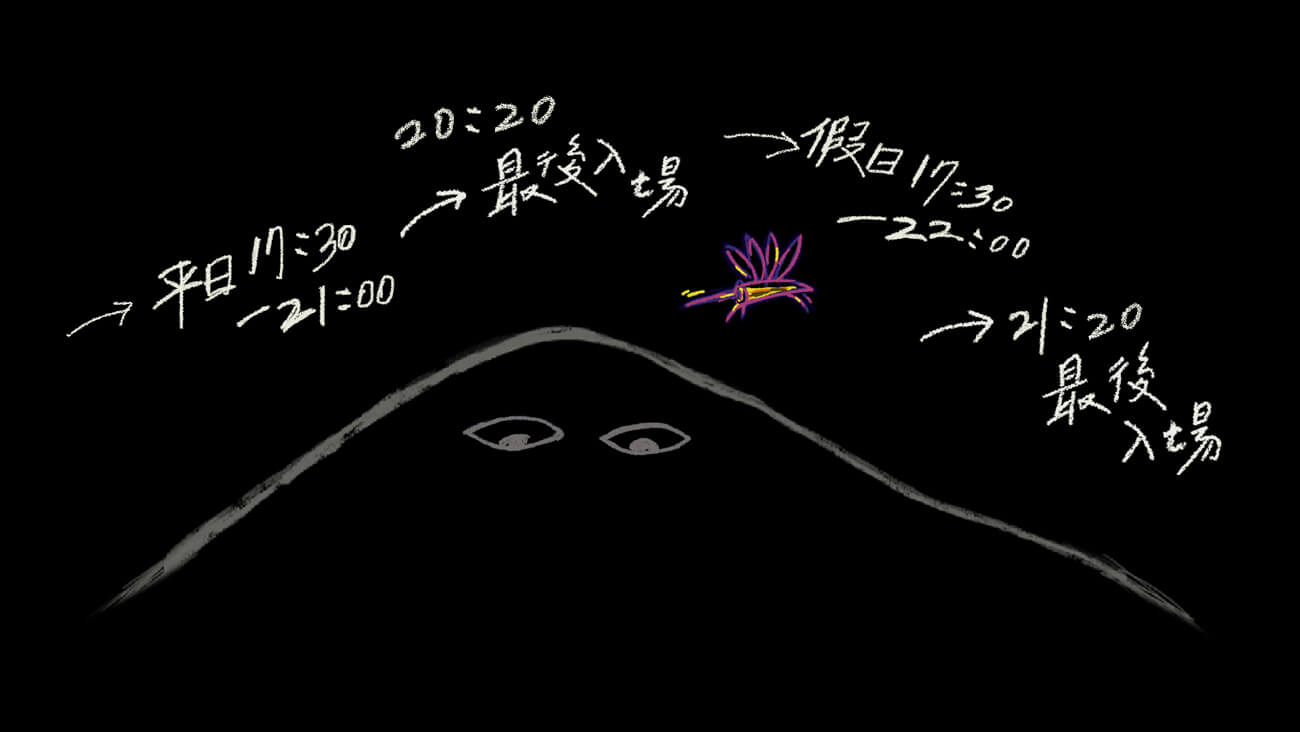 →平日17:30
-21:00
20:20
→最後入場
→假日17:30
-22:00
→21:20
最後
入場